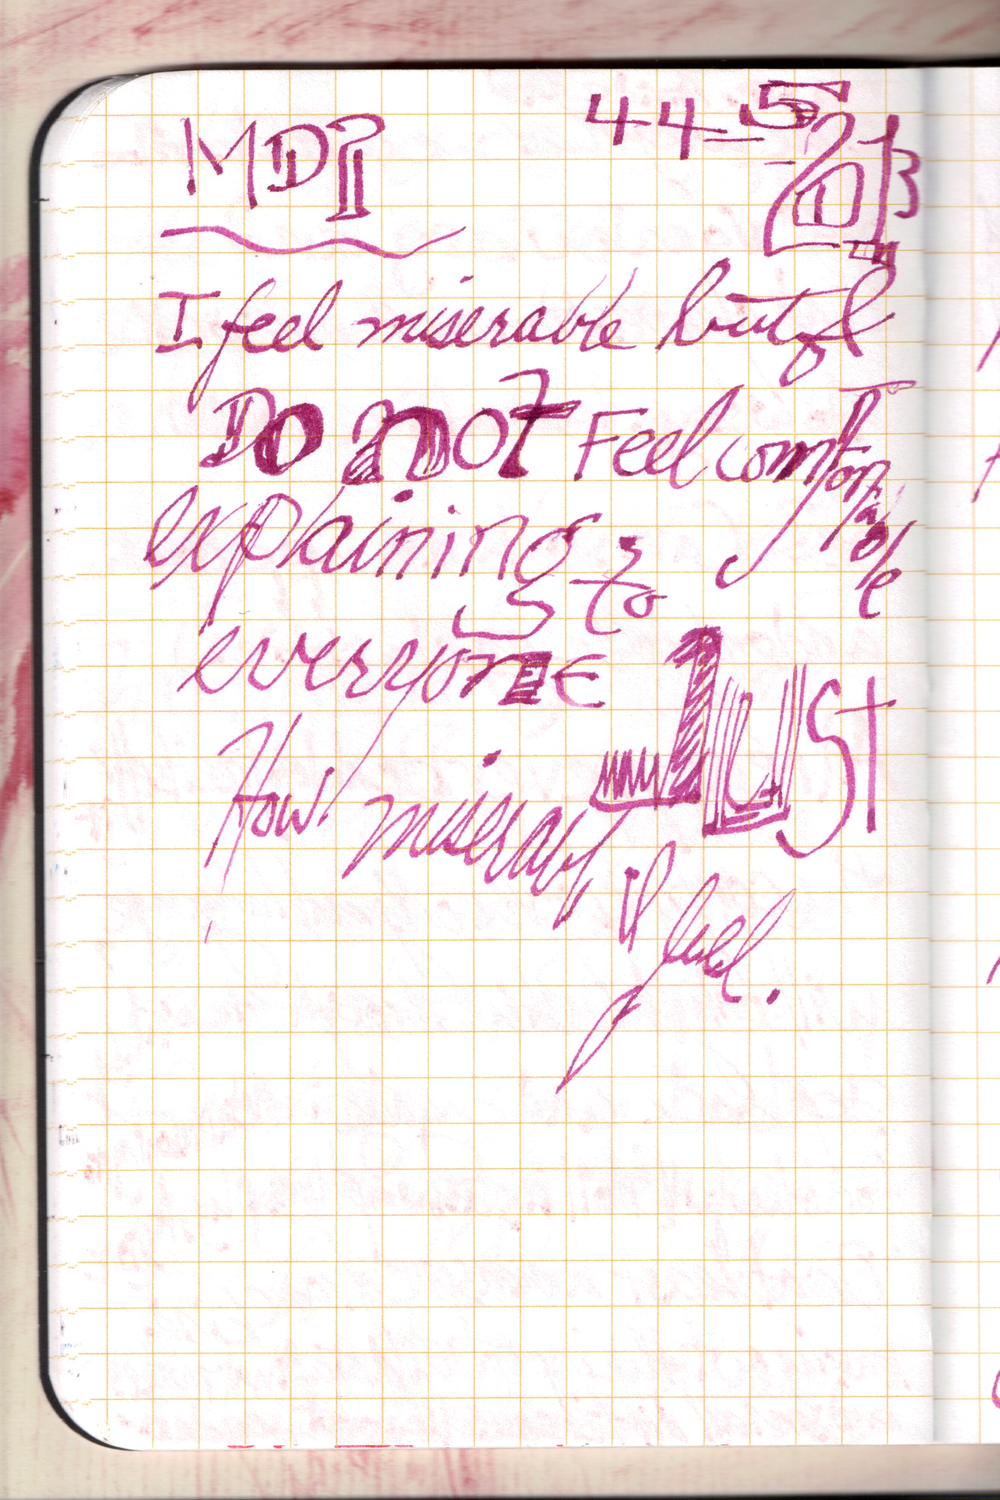 MDP
44-5
2013
I feel miserable but I
Do not Feel comfortable
explaining to
everyone JUST
How miserable I feel.